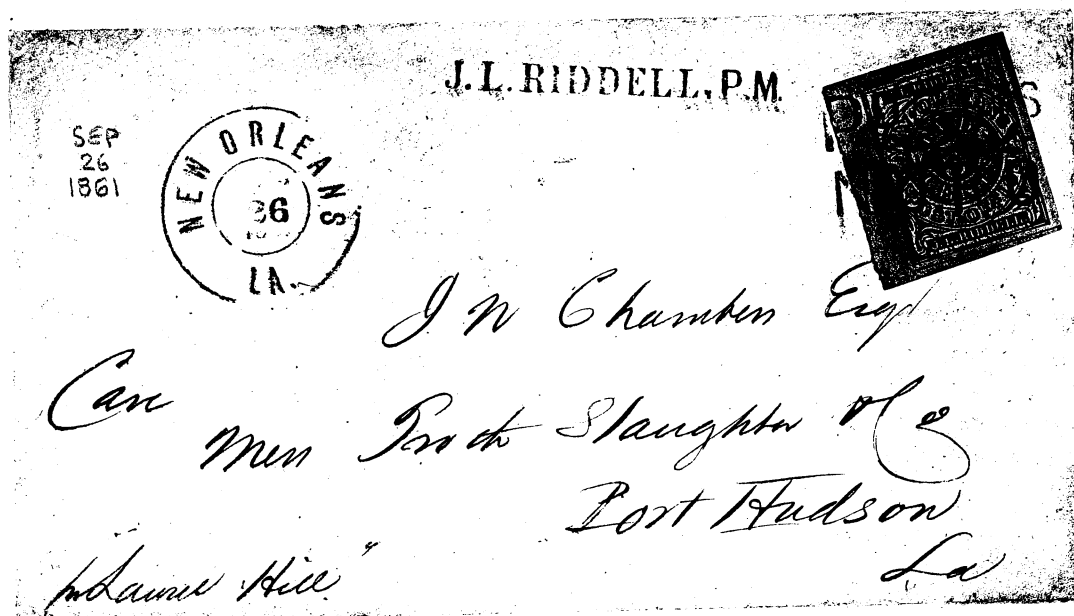 J.L.RIDDELL, P.M.
SEP
26
1861
NEW ORLEANS
26
LA.
J N Chambers Esq
Care
Mess Slaughter & Co
Port Hudson
La
pr "Laurel Hill"